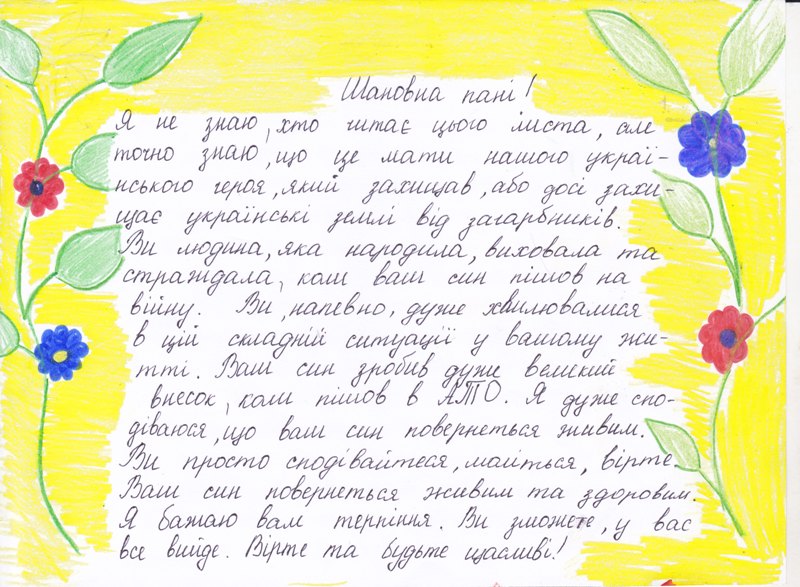 Шановна пані!
Я не знаю, хто читає цього листа, але
точно знаю, що це мати нашого украї-
нського героя, який захищав, або досі захи-
щає українські землі від загарбників.
Ви людина, яка народила, виховала та
страждала, коли ваш син пішов на
війну. Ви, напевно, дуже хвилювалися
в цій складній ситуації у вашому жи-
тті. Ваш син зробив дуже великий
внесок, коли пішов в АТО. Я дуже спо-
діваюся, що ваш син повернеться живим.
Ви просто сподівайтеся, моліться, вірте.
Ваш син повернеться живим та здоровим.
Я бажаю вам терпіння. Ви зможете, у вас
все вийде. Вірте та будьте щасливі!